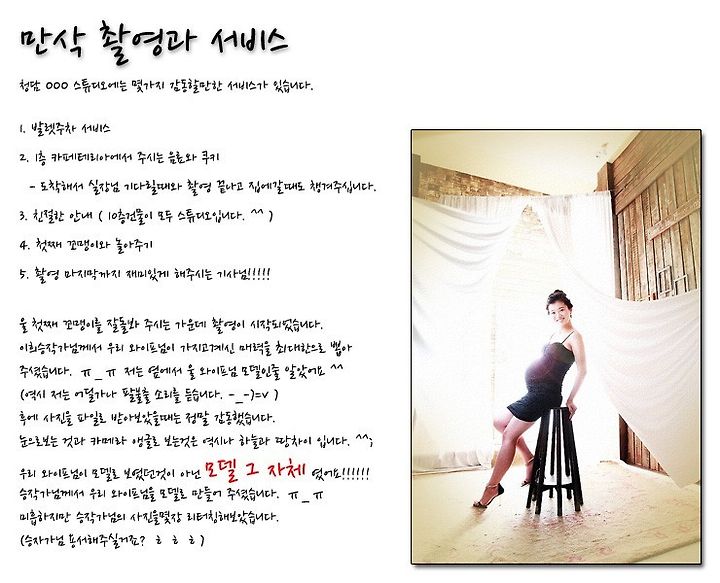 만삭 촬영과 서비스
청담 OOO 스튜디오에는 몇가지 감동할만한 서비스가 있습니다.
1. 발렛주차 서비스
2. 1층 카페테리아에서 주시는 음료와 쿠키
- 도착해서 실장님 기다릴때와 촬영 끝나고 집에갈때도 챙겨주십니다.
3. 친절한 안내 ( 10층건물이 모두 스튜디오입니다. ^^ )
4. 첫째 꼬맹이와 놀아주기
5. 촬영 마지막까지 재미있게 해주시는 기사님!!!!!
울 첫째 꼬맹이를 잘돌봐 주시는 가운데 촬영이 시작되었습니다.
이희승작가님께서 우리 와이프님이 가지고계신 매력을 최대한으로 뽑아
주셨습니다. ㅠ_ㅠ 저는 옆에서 울 와이프님 모델인줄 알았어요 ^^
(역시 저는 어딜가나 팔불출 소리를 듣습니다. -_-)=v )
후에 사진을 파일로 받아보았을때는 정말 감동했습니다.
눈으로보는것과 카메라 앵글로 보는것은 역시나 하늘과 땅차이 입니다. ^^;
우리 와이프님이 모델로 보였던것이 아닌 모델 그 자체 였어요!!!!!!
승작가님께서 우리 와이프님을 모델로 만들어 주셨습니다. ㅠ_ㅠ
미흡하지만 승작가님의 사진을몇장 리터칭해보았습니다.
(승자가님 용서해주실거죠? ㅎ ㅎ ㅎ )